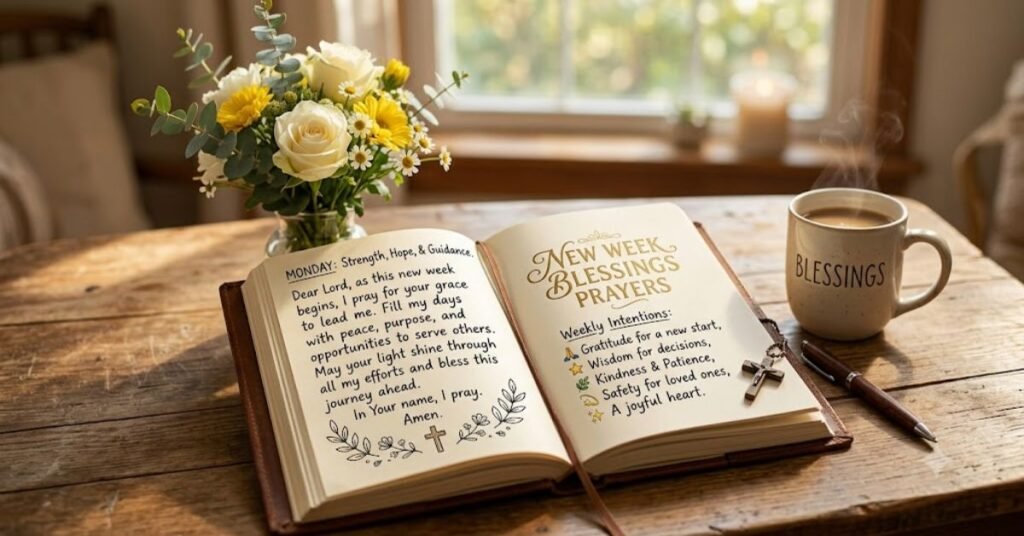 MONDAY: Strength, Hope, & Guidance.
Dear Lord, as this new week
begins, I pray for your grace
to lead me. Fill my days
with peace, purpose, and
opportunities to serve others.
May your light shine through
all my efforts and bless this
journey ahead.
In Your name, I pray.
Amen.
NEW WEEK
BLESSINGS
PRAYERS
Weekly Intentions:
🙏 Gratitude for a new start,
⭐ Wisdom for decisions,
🌿 Kindness & Patience,
💫 Safety for loved ones,
✨ A joyful heart.
BLESSINGS